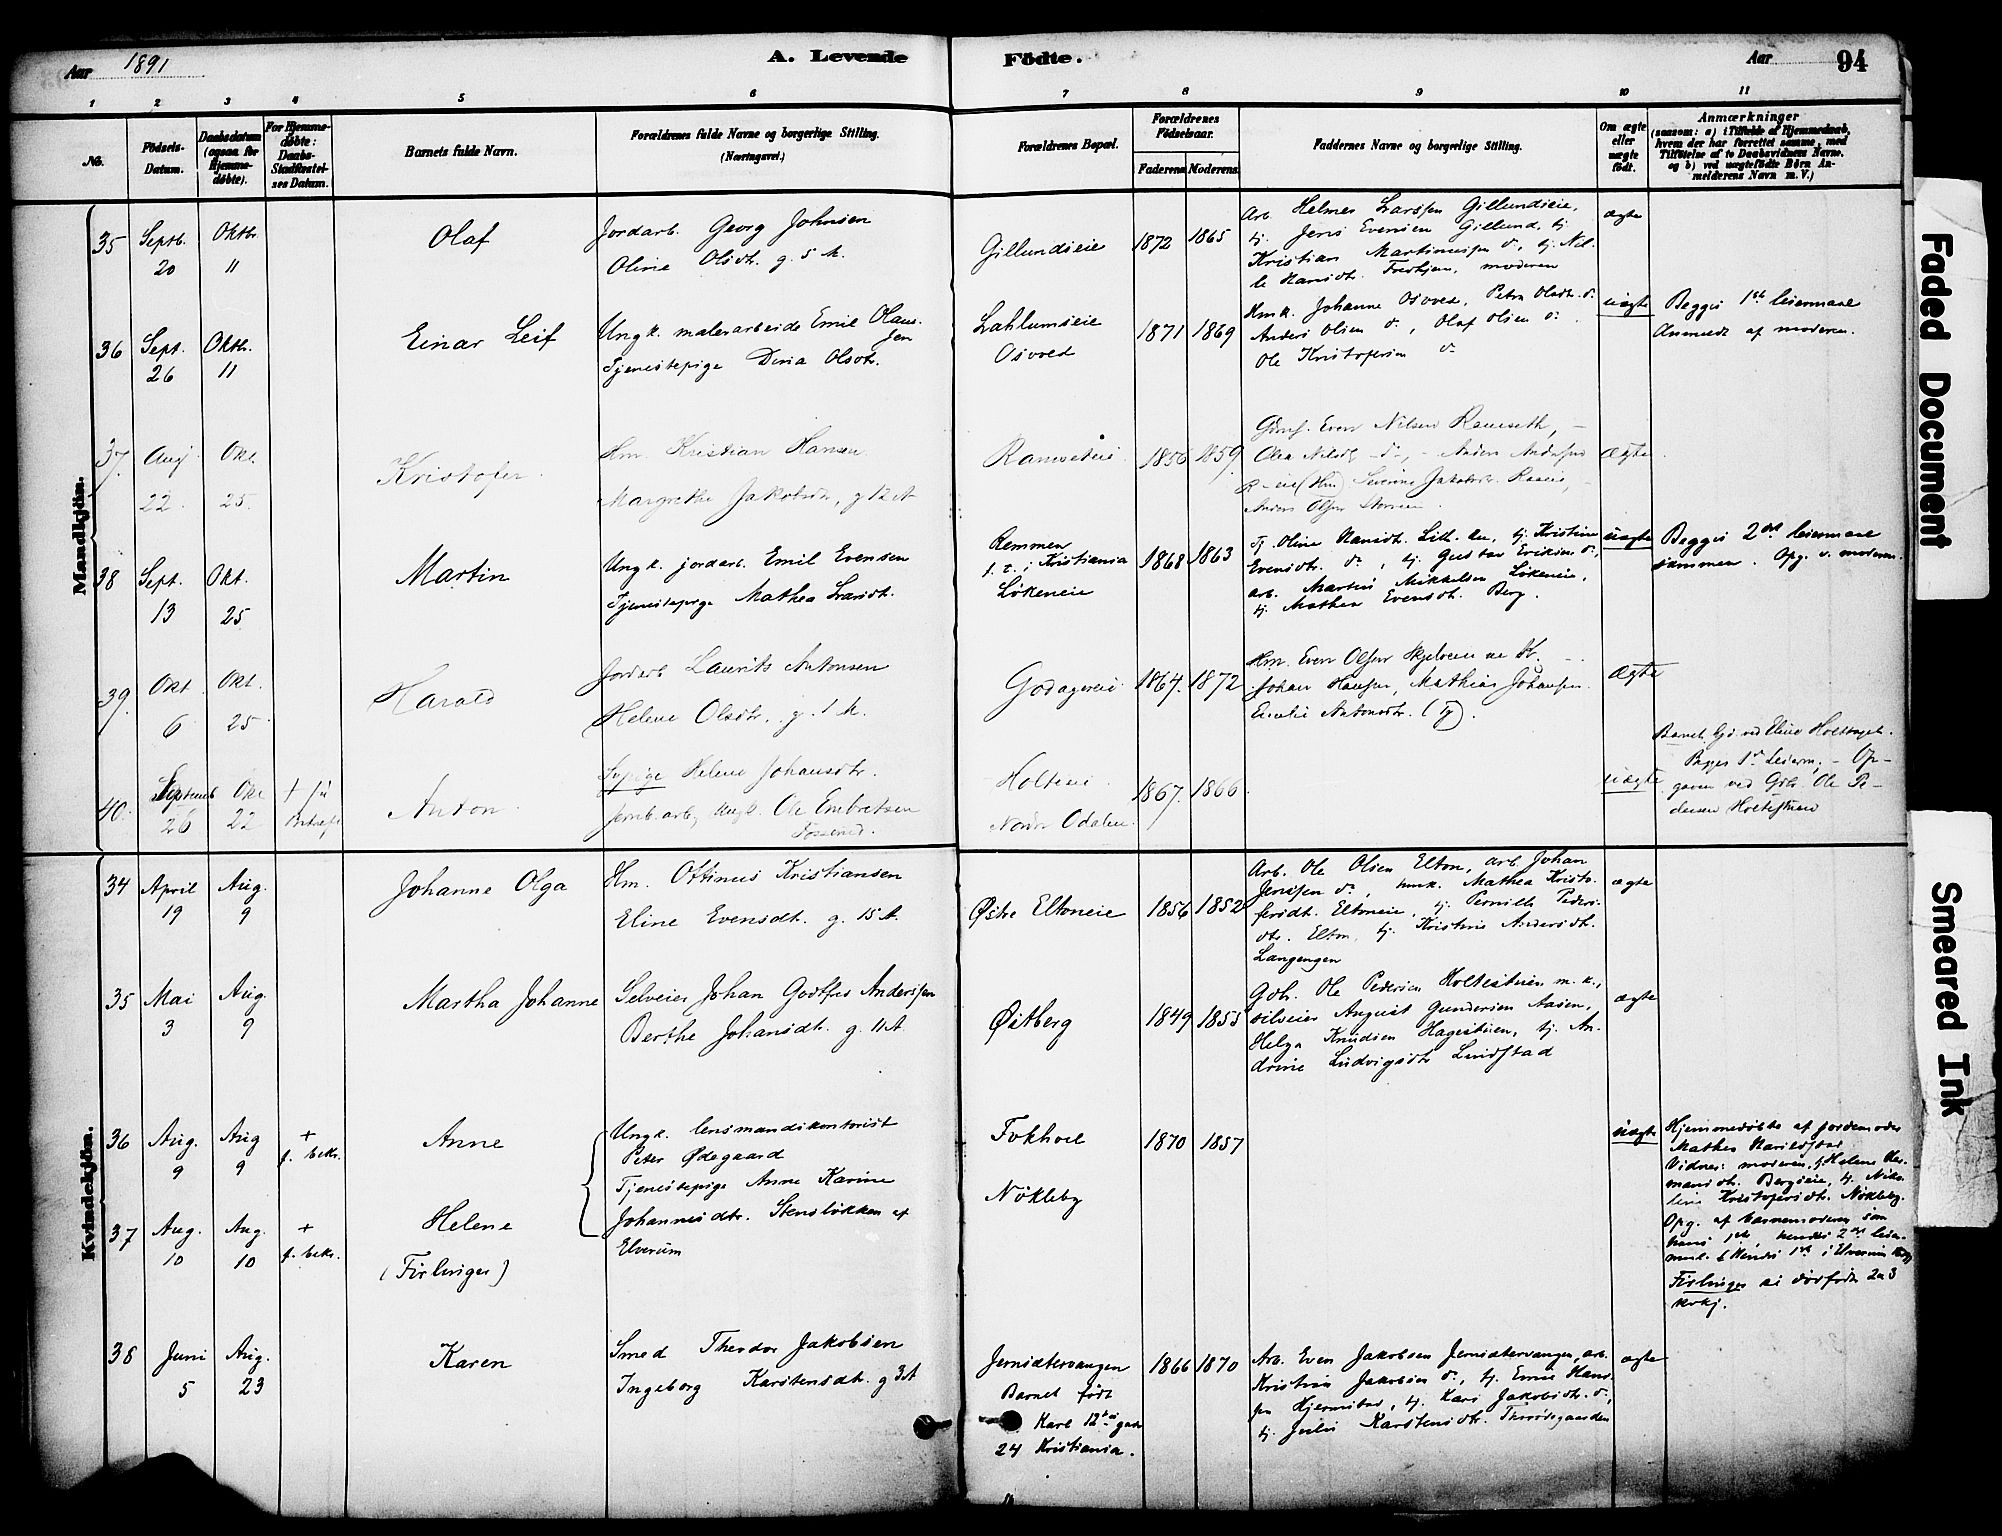 Aar 1891
A. Levende
Födte.
Aar
94
1 2 3 4 5 6 7 8 9 10 11
No.
Födsels-
Datum.
Daabsdatum
(ogsaa for
Hjemme-
døbte).
For Hjemme-
døbte:
Daabs-
Stadfæstel-
ses Datum.
Barnets fulde Navn.
Forældrenes fulde Navne og borgerlige Stilling.
(Næringsvei.)
Forældrenes Bopæl.
Forældrenes
Födselsaar.
Faderens
Moderens
Faddernes Navne og borgerlige Stilling.
Om ægte
eller
uægte
født.
Anmærkninger
(saasom: a) i Tilfælde af Hjemmedaab,
hvem der har forrettet samme, med
Tilføielse af to Daabsvidners Navne,
og b) ved uægtefødte Börn An-
melderens Navn m. V.)
Mandkjön.
35
Septb.
20
Oktbr.
11
Olaf
Jordarb. Georg Johnsen
Oline Olsdt. g. 5 M.
Gillundseie
1872
1865
Arb. Helmer Larssen Gillundseie,
tj. Jens Evensen Gillund, tj.
Kristian Martinussen do, tj. Nil-
le Hansdt. moderen
ægte
36
Sept.
26
Oktbr.
11
Einar Leif
Ungk. malerarbeide Emil Olaus-
sen
Tjenestepige Dina Olsdt.
Lahlumseie
Osvod
1871
1869
Hmk. Johanne Osvod, Petra Olsdt. do
Anders Olsen do, Olaf Olsen do
Ole Kristofersen do
uægte
Begges 1ste leiermaal
Anmeldt af moderen.
37
Aug.
22
Okt.
25
Kristofer
Hm. Kristian Hansen
Margrethe Jakobsdt, g 12 A
Ramseteie
1856
1859
Gbmf. Even Nilsen Ramseth,
Olea Nilsdt. do, Anders Andersen
R-eie (Hm) Severine Jakobsdt.
Anders Olsen
ægte
38
Sept.
13
Okt.
25
Martin
Ungk. jordarb. Emil Evensen
Tjenestepige Mathea Larsdt.
Remmen
f. t. i Kristiania
Løkeneie
1868
1863
Tj. Oline Hansdt. tj. Kristine
Evensdt. do, tj. Gustav Eriksen do,
arb. Martin Mikkelsen Løkeneie,
tj. Mathea Evensdt. Berg.
uægte
Begges 2det leiermaal
sammen. Opg. v. moderen.
39
Okt
6
Okt.
25
Harald
Jordarb Laurits Antonsen
Helene Olsdtr, g. 1 M.
Godagereie
1864.
1872
Hm. Even Olsen
Johan Hansen, Mathias Johansen
Emilie Antonsdtr. (Tj).
ægte
40
Septemb
26
Okt
22
Anton
Tjpige Helene Johansdtr.
Jernb. arb, Ungk. Ole Embretsen
Holteeie
Nordr Odalen
1867.
1866
uægte
Barnet Gd. ved Eline
Begges 1ste Leierm, - Op-
given ved Gbr. Ole Pe-
dersen Holtestuen
Kvindekjön.
34
April
19
Aug.
9
Johanne Olga
Hm. Ottinus Kristiansen
Eline Evensdt. g. 15 A.
Østre Eltoneie
1856
1852
Arb. Ole Olsen Elton, arb. Johan
Jenssen do, hmk. Mathea Kristo-
fersdt. Eltoneie, tj. Pernille Peders-
dtr. Elton, tj. Kristine Andersdt.
Langengen
ægte
35
Mai
3
Aug.
9
Martha Johanne
Selveier Johan Godtfred Anderssen
Berthe Johansdt. g. 11 A
Østberg
1849
1855
Gbr. Ole Pedersen Holtestuen m. k.,
selveier August Gundersen Aasen,
Helga Knudsen Hagestuen, tj. An-
drine Ludvigsdt Lindstad
ægte
36
Aug.
9
Aug
9
+
f. bekr.
Anne
Ungk. lensmandskontorist
Peter Ødegaard
Tjenestepige Anne Karine
Johannesdtr. Stensløkken af
Elverum
Fokhol
Nökleby
1870
1857
uægte
Hjemmedøbte af jordemoder
Mathea
Vidner: moderen, tj. Helene Her-
mansdt. Bergseie, tj. Niko-
line Kristofersdt. Nökleby.
Opg. af barnemoderen som
hans 1ste, hendes 2det leier-
maal. Hendes 1ste i Elverum
Firlinger se dødfødte 2 & 3
kvkj.
37
Aug.
10
Aug.
10
+
f. bekr.
Helene
(Firlinger)
38
Juni
5
Aug.
23
Karen
Smed Theodor Jakobsen
Ingeborg Karstensdt. g 3 A
Jernsætervangen
Barnet født
Karl 12tes gade
24 Kristiania.
1866
1870
Arb. Even Jakobsen Jernsætervangen, arb.
Kristian Jakobsen do, tj. Emil Hans-
sen Hjermstad, tj. Kari Jakobsdt. do,
tj. Julie Karstensdtr. Thorødsgaarden
ægte
Faded Document
Smeared Ink